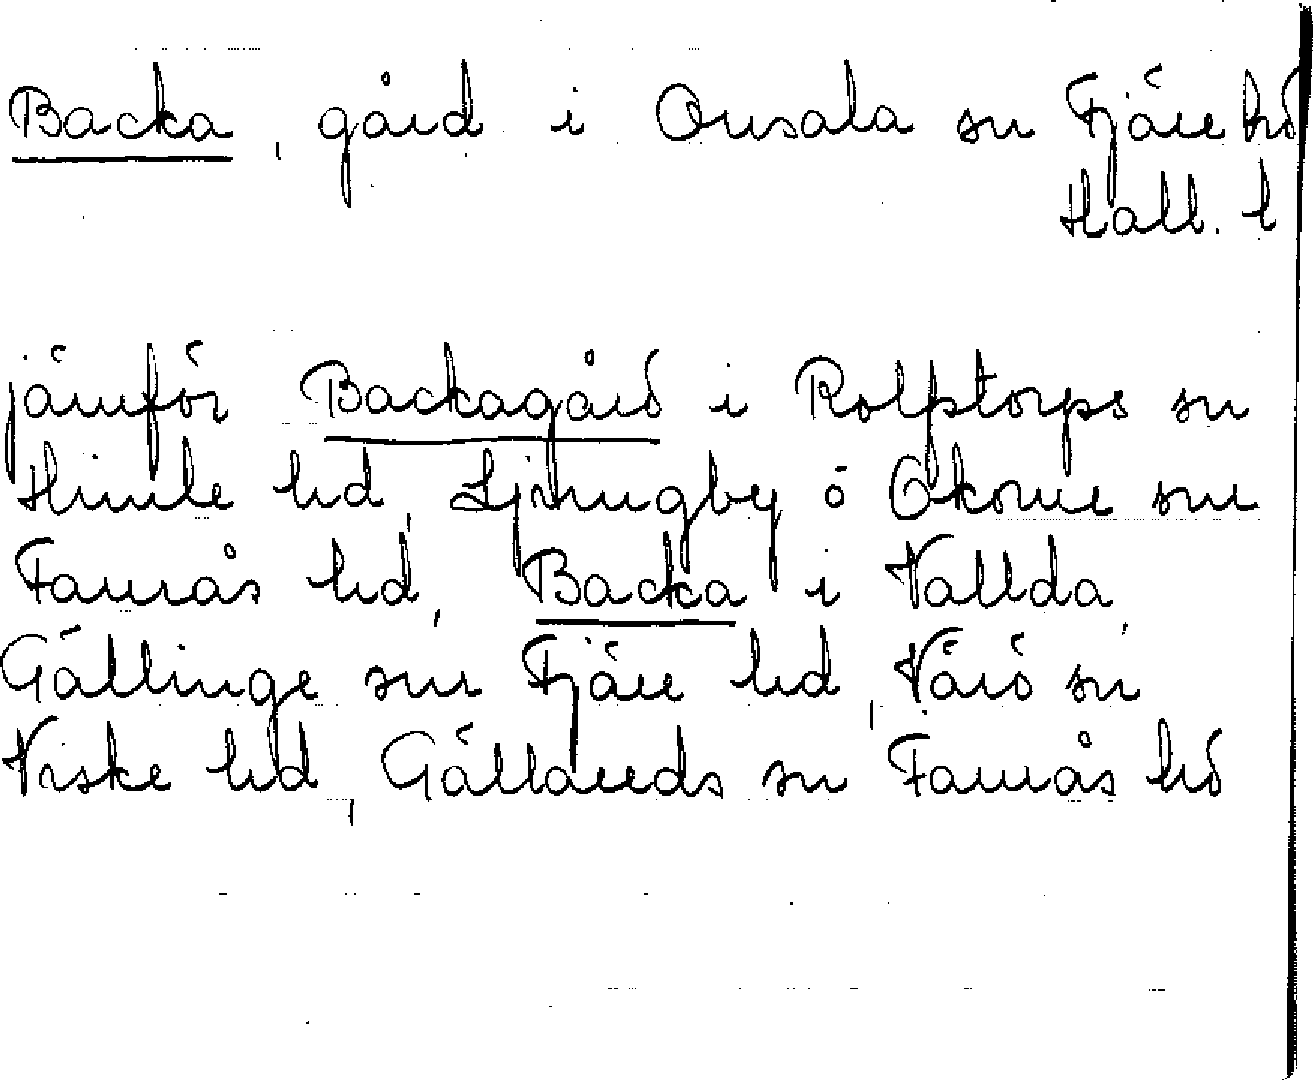 Backa, gård i Onsala sn Fjäre hd
Hall. l
jämför Backagård i Rolfstorps sn
Himle hd, Ljungby o Okome snr
Faurås hd, Backa i Vallda,
Gällinge snr Fjäre hd, Värö sn
Viske hd, Gällareds sn Faurås hd